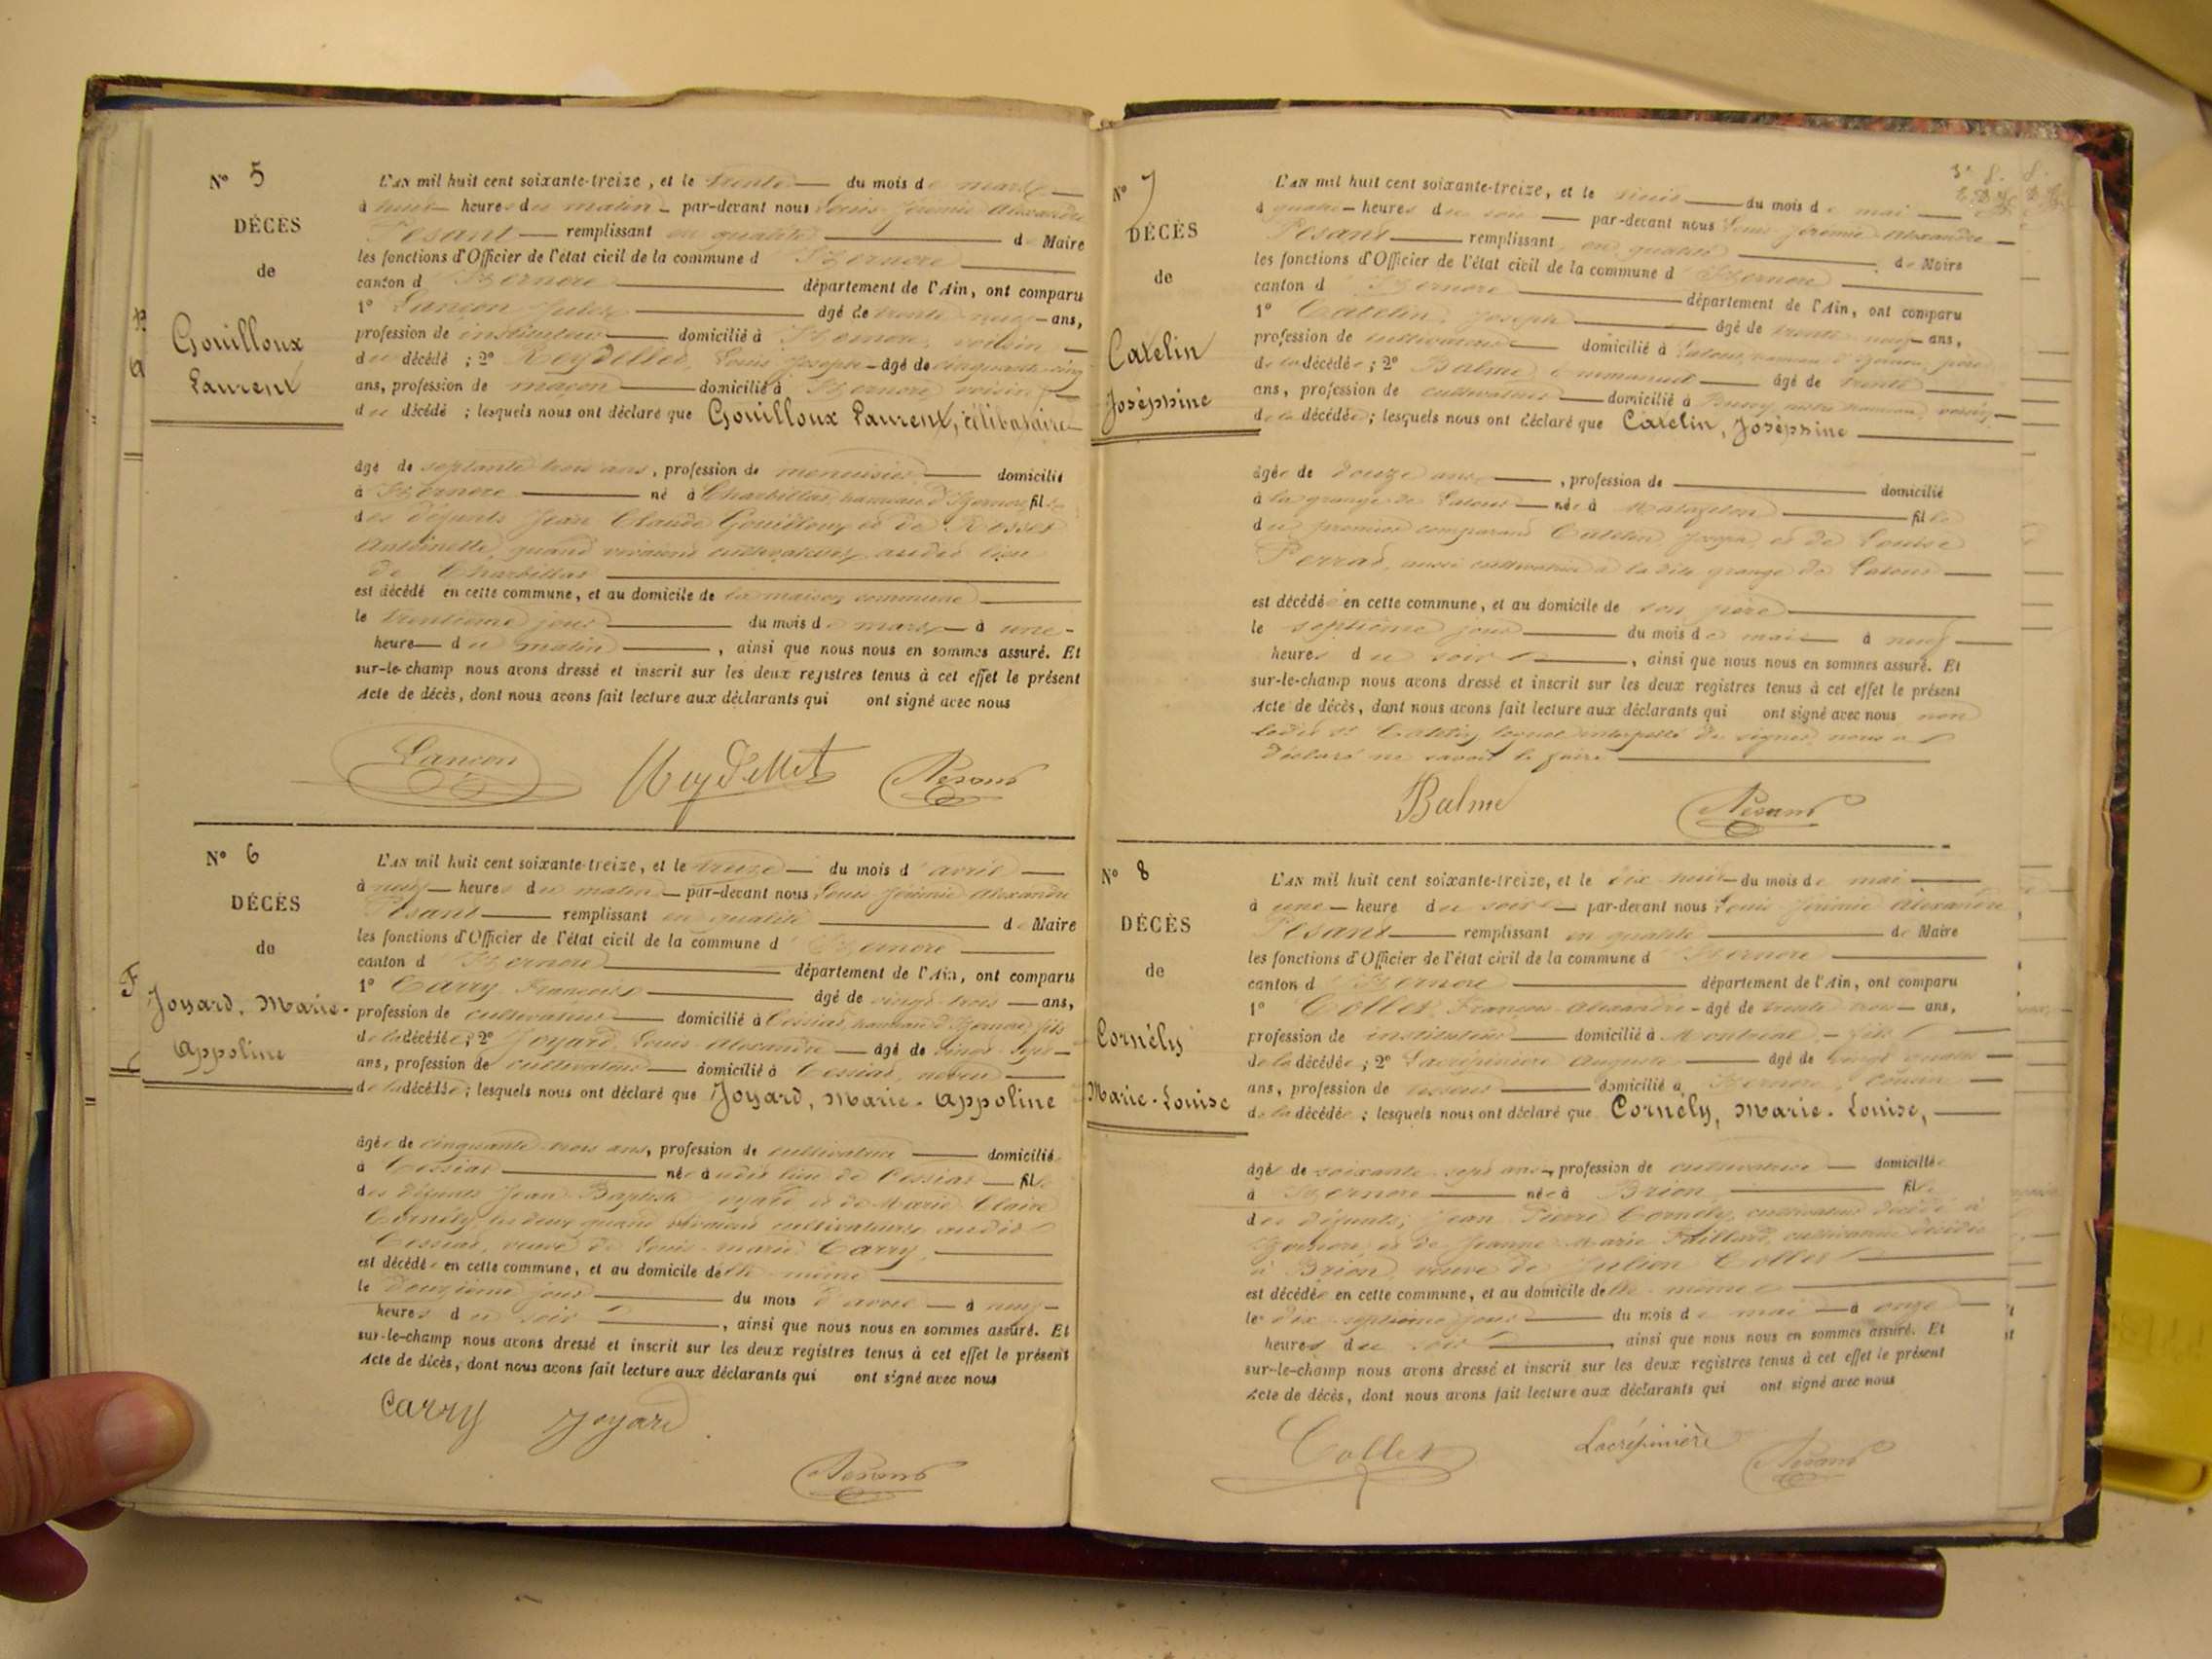 N° 5
DÉCÈS
de
Gouilloux
Laurent
L'AN mil huit cent soixante-treize, et le trente du mois de mars
à huit heures du matin par-devant nous Louis Jérémie Alexandre
Pesant remplissant en qualité de Maire
les fonctions d'Officier de l'état civil de la commune d'Izernore
canton d'Izernore département de l'Ain, ont comparu
1° Lançon Jules âgé de trente neuf ans,
profession de instituteur domicilié à Izernore, voisin
du décédé ; 2° Reydellet, Louis Joseph âgé de cinquante cinq
ans, profession de maçon domicilié à Izernore voisin
du décédé ; lesquels nous ont déclaré que Gouilloux Laurent, célibataire
âgé de septante trois ans, profession de menuisier domicilié
à Izernore né à Charbillat, hameau d'Izernore, fils
des défunts Jean Claude Gouilloux et de Rosset
Antoinette, quand vivaient cultivateurs audit lieu
de Charbillat
est décédé en cette commune, et au domicile de la maison commune
le trentième jour du mois de mars à une
heure du matin, ainsi que nous nous en sommes assuré. Et
sur-le-champ nous avons dressé et inscrit sur les deux registres tenus à cet effet le présent
Acte de décès, dont nous avons fait lecture aux déclarants qui ont signé avec nous
Lançon Reydellet Pesant
N° 6
DÉCÈS
de
Joyard, Marie-
Appoline
L'AN mil huit cent soixante-treize, et le treize du mois d'avril
à neuf heures du matin par-devant nous Louis Jérémie Alexandre
Pesant remplissant en qualité de Maire
les fonctions d'Officier de l'état civil de la commune d'Izernore
canton d'Izernore département de l'Ain, ont comparu
1° Carry François âgé de vingt trois ans,
profession de cultivateur domicilié à Cessiat, hameau d'Izernore, fils
de la décédée ; 2° Joyard, Louis Alexandre âgé de vingt sept
ans, profession de cultivateur domicilié à Cessiat, neveu
de la décédée ; lesquels nous ont déclaré que Joyard, Marie-Appoline
âgée de cinquante trois ans, profession de cultivatrice domiciliée
à Cessiat née audit lieu de Cessiat fille
des défunts Jean Baptiste Joyard et de Marie Claire
Cornély, les deux quand vivaient cultivateurs audit
Cessiat, veuve de Louis Marie Carry,
est décédée en cette commune, et au domicile d'elle-même
le douzième jour du mois d'avril à neuf
heures du soir, ainsi que nous nous en sommes assuré. Et
sur-le-champ nous avons dressé et inscrit sur les deux registres tenus à cet effet le présent
Acte de décès, dont nous avons fait lecture aux déclarants qui ont signé avec nous
Carry Joyard
Pesant
N° 7
DÉCÈS
de
Catelin
Joséphine
L'AN mil huit cent soixante-treize, et le huit du mois de mai
à quatre heures du soir par-devant nous Louis Jérémie Alexandre
Pesant remplissant en qualité de Maire
les fonctions d'Officier de l'état civil de la commune d'Izernore
canton d'Izernore département de l'Ain, ont comparu
1° Catelin, Joseph âgé de trente neuf ans,
profession de cultivateur domicilié à hameau d'Izernore, père
de la décédée ; 2° Balme Emmanuel âgé de trente
ans, profession de cultivateur domicilié à hameau, voisin
de la décédée ; lesquels nous ont déclaré que Catelin, Joséphine
âgée de douze ans, profession de domicilié
à la grange de née à Matafelon fille
du premier comparant Catelin, Joseph, et de Louise
Perrad, aussi cultivatrice à la dite grange de
est décédée en cette commune, et au domicile de son père
le septième jour du mois de mai à neuf
heures du soir, ainsi que nous nous en sommes assuré. Et
sur-le-champ nous avons dressé et inscrit sur les deux registres tenus à cet effet le présent
Acte de décès, dont nous avons fait lecture aux déclarants qui ont signé avec nous non
ledit Sr Catelin, lequel interpellé de signer, nous a
déclaré ne savoir le faire
Balme Pesant
N° 8
DÉCÈS
de
Cornély
Marie-Louise
L'AN mil huit cent soixante-treize, et le dix huit du mois de mai
à une heure du soir par-devant nous Louis Jérémie Alexandre
Pesant remplissant en qualité de Maire
les fonctions d'Officier de l'état civil de la commune d'Izernore
canton d'Izernore département de l'Ain, ont comparu
1° Collet, François Alexandre âgé de trente trois ans,
profession de instituteur domicilié à Montréal, fils
de la décédée ; 2° Lacrépinière Auguste âgé de vingt quatre
ans, profession de domicilié à Izernore, cousin
de la décédée ; lesquels nous ont déclaré que Cornély, Marie-Louise,
âgée de soixante sept ans, profession de cultivatrice domiciliée
à Izernore née à Brion fille
des défunts, Jean Pierre Cornély, cultivateur décédé à
Izernore, et de Jeanne Marie Paillard, cultivatrice décédée
à Brion, veuve de Julien Collet
est décédée en cette commune, et au domicile d'elle-même
le dix septième jour du mois de mai à onze
heures du soir, ainsi que nous nous en sommes assuré. Et
sur-le-champ nous avons dressé et inscrit sur les deux registres tenus à cet effet le présent
Acte de décès, dont nous avons fait lecture aux déclarants qui ont signé avec nous
Collet Lacrépinière Pesant